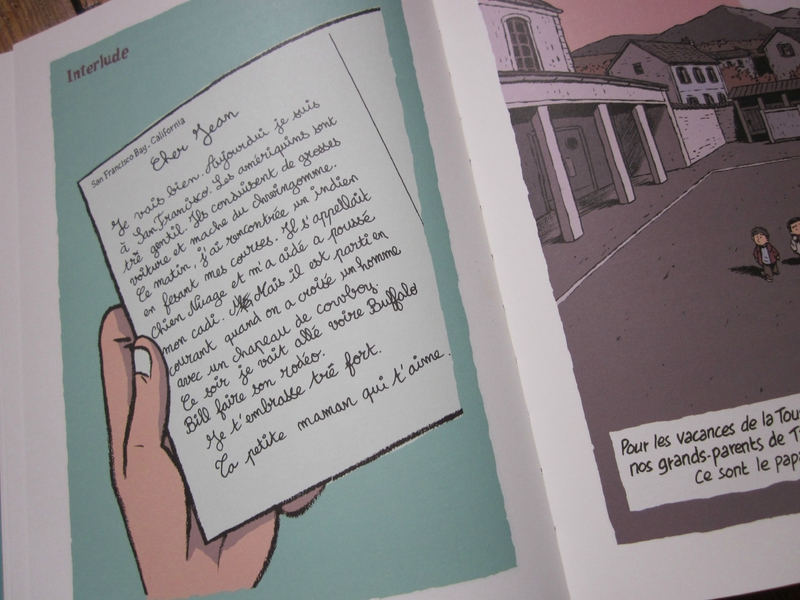 Interlude
San Francisco Bay, California
Cher Jean
Je vais bien. Aujourdui je suis
à San Francisco. Les amériquins sont
trê gentil. Ils consuisent de grosses
voiture et mache du chwingomme.
Ce matin, j'ai rencontrée un indien
en fesant mes courses. Il s'appellait
Chien Nuage et m'a aidé a poussé
mon cadi. Mais il est parti en
courant quand on a croisé un homme
avec un chapeau de cowboy.
Ce soir je vait allé voire Buffalo
Bill faire son rodéo.
Je t'embrasse trê fort.
Ta petite maman qui t'aime.
Pour les vacances de la Tou
nos grands-parents de T
Ce sont le pap